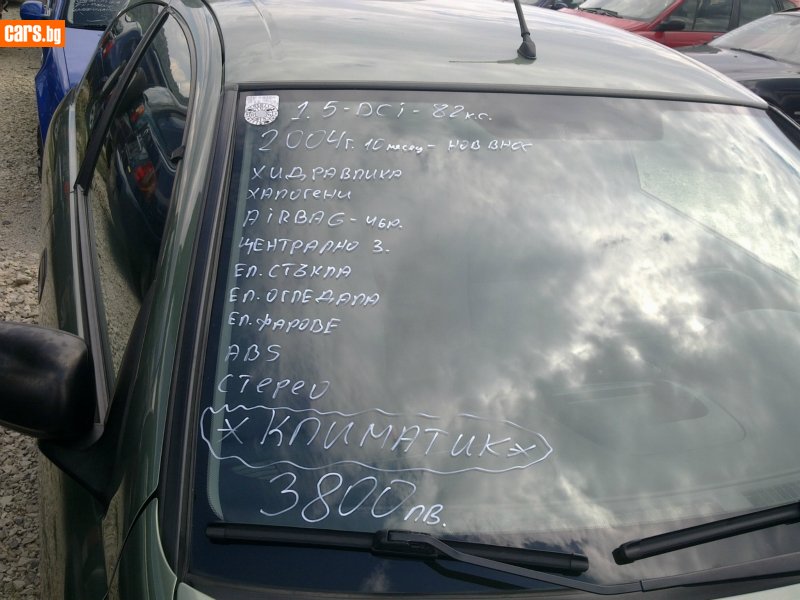 cars.bg
1.5-DCi-82кс.
2004г. 10месец-нов внос
ХИДРАВЛИКА
ХАЛОГЕНИ
AIRBAG-4бр.
ЦЕНТРАЛНО З.
ЕЛ.СТЪКЛА
ЕЛ.ОГЛЕДАЛА
ЕЛ.ФАРОВЕ
ABS
СТЕРЕО
*КЛИМАТИК*
3800лв.